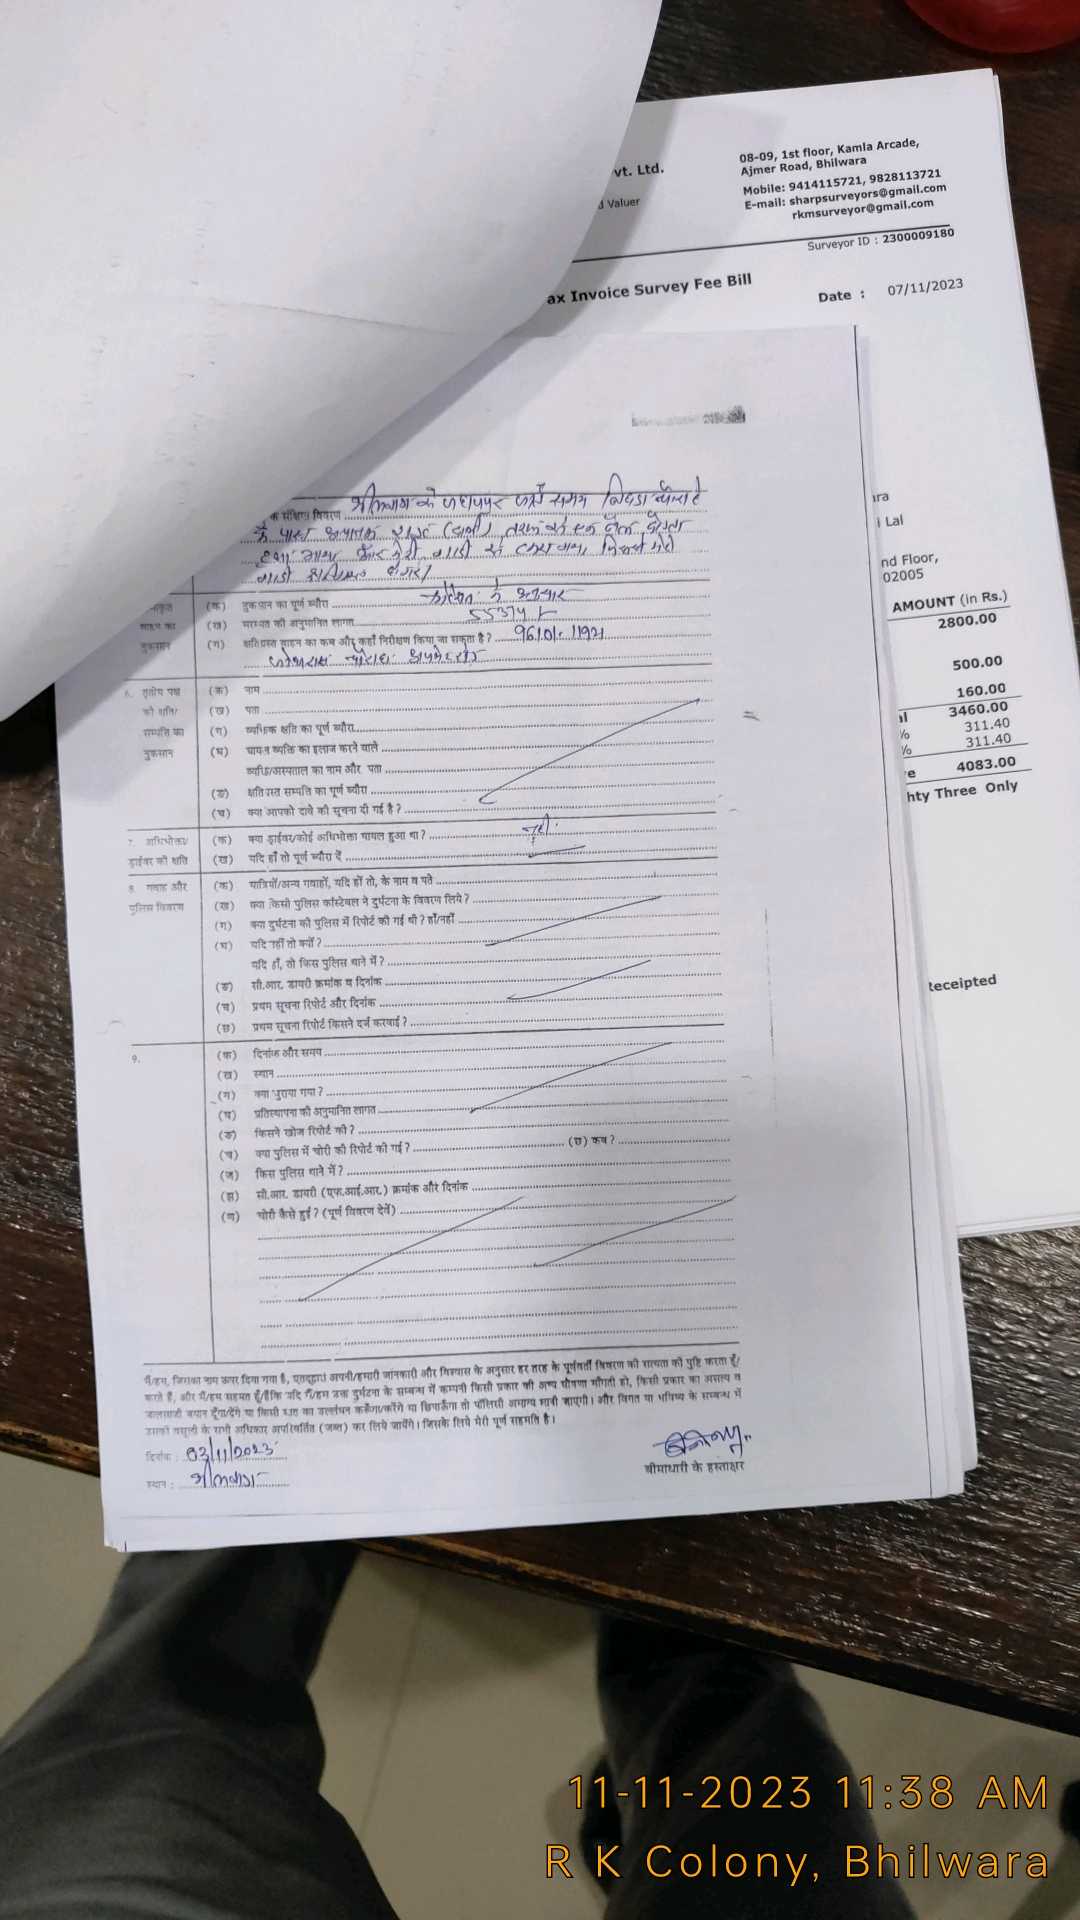 vt. Ltd.
d Valuer
08-09, 1st floor, Kamla Arcade,
Ajmer Road, Bhilwara
Mobile: 9414115721, 9828113721
E-mail: sharpsurveyors@gmail.com
rkmsurveyor@gmail.com
Surveyor ID : 2300009180
ax Invoice Survey Fee Bill
Date : 07/11/2023
ara
i Lal
nd Floor,
02005
AMOUNT (in Rs.)
2800.00
500.00
160.00
al 3460.00
% 311.40
% 311.40
e 4083.00
hty Three Only
Receipted
क संक्षिप्त विवरण
के पास अचानक राइट
गाडी
वाहन का
नुकसान
(क) नुकसान का पूर्ण ब्यौरा
(ख) मरम्मत की अनुमानित लागत 55374/-
(ग) क्षतिग्रस्त वाहन का कब और कहाँ निरीक्षण किया जा सकता है?
6. तृतीय पक्ष (क) नाम
की क्षति/ (ख) पता
सम्पत्ति का (ग) व्यक्तिक क्षति का पूर्ण ब्यौरा
नुकसान (घ) घायल व्यक्ति का इलाज करने वाले
व्यक्ति/अस्पताल का नाम और पता
(ङ) क्षतिग्रस्त सम्पत्ति का पूर्ण ब्यौरा
(च) क्या आपको दावे की सूचना दी गई है?
7. अधिभोक्ता/ (क) क्या ड्राईवर/कोई अधिभोक्ता घायल हुआ था? नही
ड्राईवर की क्षति (ख) यदि हाँ तो पूर्ण ब्यौरा दें
8. गवाह और (क) यात्रियों/अन्य गवाहों, यदि हों तो, के नाम व पते
पुलिस विवरण (ख) क्या किसी पुलिस कांस्टेबल ने दुर्घटना के विवरण लिये?
(ग) क्या दुर्घटना की पुलिस में रिपोर्ट की गई थी? हाँ/नहीं
(घ) यदि नहीं तो क्यों?
यदि हाँ, तो किस पुलिस थाने में?
(ङ) सी.आर. डायरी क्रमांक व दिनांक
(च) प्रथम सूचना रिपोर्ट और दिनांक
(छ) प्रथम सूचना रिपोर्ट किसने दर्ज करवाई?
9. (क) दिनांक और समय
(ख) स्थान
(ग) क्या चुराया गया?
(घ) प्रतिस्थापना की अनुमानित लागत
(ङ) किसने खोज रिपोर्ट की?
(च) क्या पुलिस में चोरी की रिपोर्ट की गई? (छ) कब?
(ज) किस पुलिस थाने में?
(झ) सी.आर. डायरी (एफ.आई.आर.) क्रमांक और दिनांक
(ण) चोरी कैसे हुई? (पूर्ण विवरण देवें)
मैं/हम, जिसका नाम ऊपर दिया गया है, एतद्द्वारा अपनी/हमारी जानकारी और विश्वास के अनुसार हर तरह के पूर्णवर्ती विवरण की सत्यता की पुष्टि करता हूँ/
करते है, और मैं/हम सहमत हूँ/हैंकि यदि मैं/हम उक्त दुर्घटना के सम्बन्ध में कम्पनी किसी प्रकार की अन्य घोषणा माँगती हो, किसी प्रकार का असत्य व
जालसाजी बयान दूँगा/देंगे या किसी का उल्लंघन करूँगा/करेंगे या छिपाऊँगा तो पॉलिसी अमान्य मानी जाएगी। और विगत या भविष्य के सम्बन्ध में
उसकी वसूली के सभी अधिकार अपरिवर्तित (जब्त) कर लिये जायेंगे। जिसके लिये मेरी पूर्ण सहमति है।
दिनांक : 03/11/2023
स्थान : भीलवाडा
बीमाधारी के हस्ताक्षर
11-11-2023 11:38 AM
R K Colony, Bhilwara